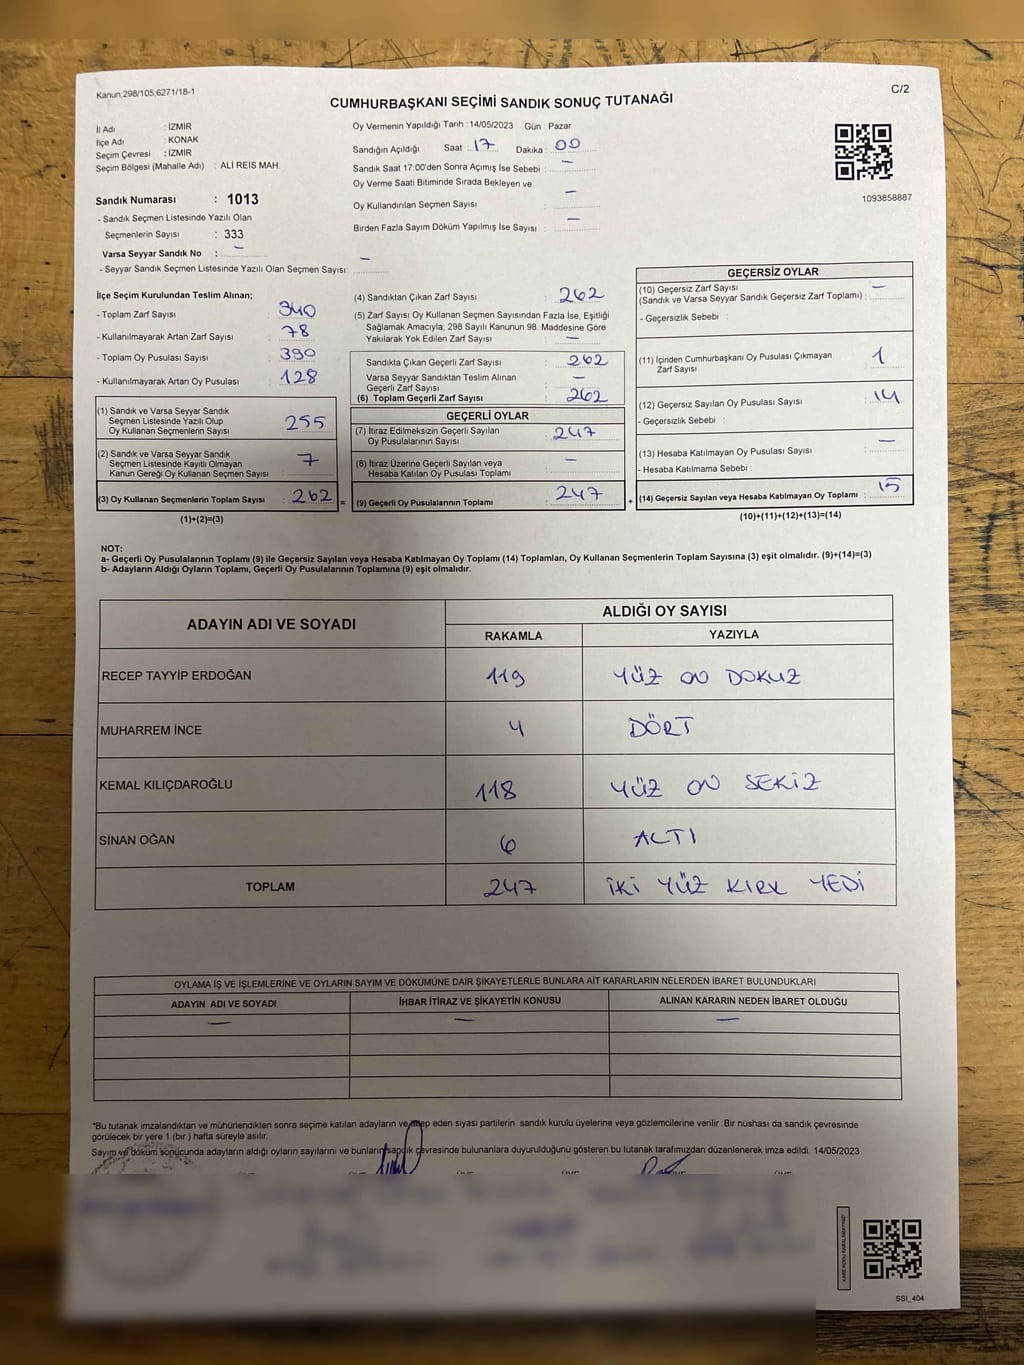 Kanun;298/105;6271/18-1
C/2
CUMHURBAŞKANI SEÇİMİ SANDIK SONUÇ TUTANAĞI
İl Adı : İZMİR
İlçe Adı : KONAK
Seçim Çevresi : İZMİR
Seçim Bölgesi (Mahalle Adı) : ALİ REİS MAH.
Oy Vermenin Yapıldığı Tarih : 14/05/2023 Gün : Pazar
Sandığın Açıldığı Saat : 17 Dakika : 00
Sandık Saat 17:00'den Sonra Açımış İse Sebebi : —
Oy Verme Saati Bitiminde Sırada Bekleyen ve
Oy Kullandırılan Seçmen Sayısı : —
Birden Fazla Sayım Döküm Yapılmış İse Sayısı : —
1093858887
Sandık Numarası : 1013
- Sandık Seçmen Listesinde Yazılı Olan
Seçmenlerin Sayısı : 333
Varsa Seyyar Sandık No : —
- Seyyar Sandık Seçmen Listesinde Yazılı Olan Seçmen Sayısı: —
İlçe Seçim Kurulundan Teslim Alınan;
- Toplam Zarf Sayısı : 340
- Kullanılmayarak Artan Zarf Sayısı : 78
- Toplam Oy Pusulası Sayısı : 390
- Kullanılmayarak Artan Oy Pusulası : 128
(1) Sandık ve Varsa Seyyar Sandık
Seçmen Listesinde Yazılı Olup
Oy Kullanan Seçmenlerin Sayısı : 255
(2) Sandık ve Varsa Seyyar Sandık
Seçmen Listesinde Kayıtlı Olmayan
Kanun Gereği Oy Kullanan Seçmen Sayısı : 7
(3) Oy Kullanan Seçmenlerin Toplam Sayısı : 262 =
(1)+(2)=(3)
(4) Sandıktan Çıkan Zarf Sayısı : 262
(5) Zarf Sayısı Oy Kullanan Seçmen Sayısından Fazla İse, Eşitliği
Sağlamak Amacıyla; 298 Sayılı Kanunun 98. Maddesine Göre
Yakılarak Yok Edilen Zarf Sayısı : —
Sandıkta Çıkan Geçerli Zarf Sayısı : 262
Varsa Seyyar Sandıktan Teslim Alınan
Geçerli Zarf Sayısı : —
(6) Toplam Geçerli Zarf Sayısı : 262
GEÇERLİ OYLAR
(7) İtiraz Edilmeksizin Geçerli Sayılan
Oy Pusulalarının Sayısı : 247
(8) İtiraz Üzerine Geçerli Sayılan veya
Hesaba Katılan Oy Pusulası Toplamı : —
(9) Geçerli Oy Pusulalarının Toplamı : 247 +
GEÇERSİZ OYLAR
(10) Geçersiz Zarf Sayısı : —
(Sandık ve Varsa Seyyar Sandık Geçersiz Zarf Toplamı)
- Geçersizlik Sebebi :
(11) İçinden Cumhurbaşkanı Oy Pusulası Çıkmayan
Zarf Sayısı : 1
(12) Geçersiz Sayılan Oy Pusulası Sayısı : 14
- Geçersizlik Sebebi :
(13) Hesaba Katılmayan Oy Pusulası Sayısı : —
- Hesaba Katılmama Sebebi :
(14) Geçersiz Sayılan veya Hesaba Katılmayan Oy Toplamı : 15
(10)+(11)+(12)+(13)=(14)
NOT:
a- Geçerli Oy Pusulalarının Toplamı (9) ile Geçersiz Sayılan veya Hesaba Katılmayan Oy Toplamı (14) Toplamları, Oy Kullanan Seçmenlerin Toplam Sayısına (3) eşit olmalıdır. (9)+(14)=(3)
b- Adayların Aldığı Oyların Toplamı, Geçerli Oy Pusulalarının Toplamına (9) eşit olmalıdır.
ADAYIN ADI VE SOYADI
ALDIĞI OY SAYISI
RAKAMLA YAZIYLA
RECEP TAYYİP ERDOĞAN 119 YÜZ ON DOKUZ
MUHARREM İNCE 4 DÖRT
KEMAL KILIÇDAROĞLU 118 YÜZ ON SEKİZ
SİNAN OĞAN 6 ALTI
TOPLAM 247 İKİ YÜZ KIRK YEDİ
OYLAMA İŞ VE İŞLEMLERİNE VE OYLARIN SAYIM VE DÖKÜMÜNE DAİR ŞİKAYETLERLE BUNLARA AİT KARARLARIN NELERDEN İBARET BULUNDUKLARI
ADAYIN ADI VE SOYADI İHBAR İTİRAZ VE ŞİKAYETİN KONUSU ALINAN KARARIN NEDEN İBARET OLDUĞU
— — —
*Bu tutanak imzalandıktan ve mühürlendikten sonra seçime katılan adayların ve talep eden siyasi partilerin sandık kurulu üyelerine veya gözlemcilerine verilir .Bir nüshası da sandık çevresinde
görülecek bir yere 1 (bir ) hafta süreyle asılır.
Sayım ve döküm sonucunda adayların aldığı oyların sayılarını ve bunların sandık çevresinde bulunanlara duyurulduğunu gösteren bu tutanak tarafımızdan düzenlenerek imza edildi. 14/05/2023
SSI_404